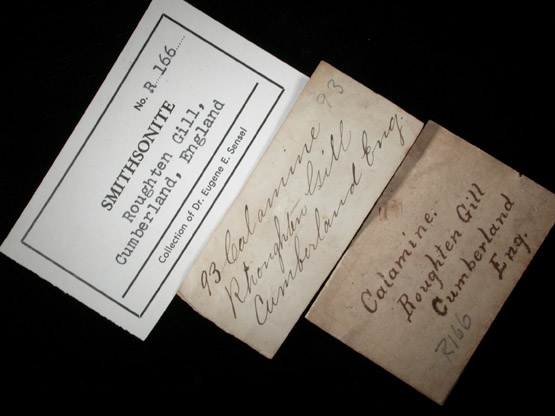 No. R 166
SMITHSONITE
Roughten Gill,
Cumberland, England
Collection of Dr. Eugene E. Sensel
93
93 Calamine
Rhoughten Gill
Cumberland Eng.
Calamine.
Roughten Gill
Cumberland
Eng.
R166